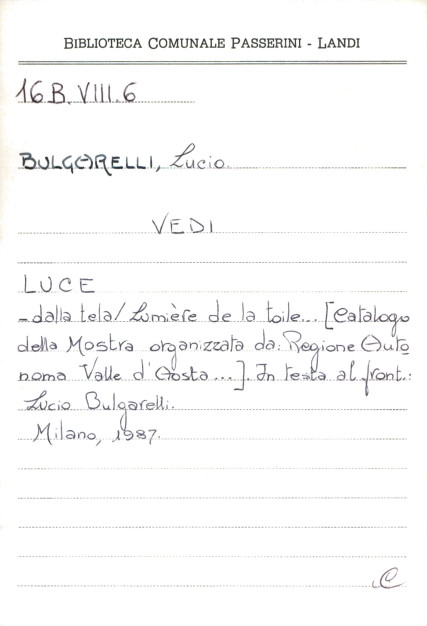 BIBLIOTECA COMUNALE PASSERINI - LANDI
16 B. VIII. 6
BULGARELLI, Lucio.
VEDI
LUCE
- dalla tela / Lumière de la toile... [Catalogo
della Mostra organizzata da: Regione Auto
noma Valle d'Aosta ...]. In testa al front.:
Lucio Bulgarelli.
Milano, 1987.
C